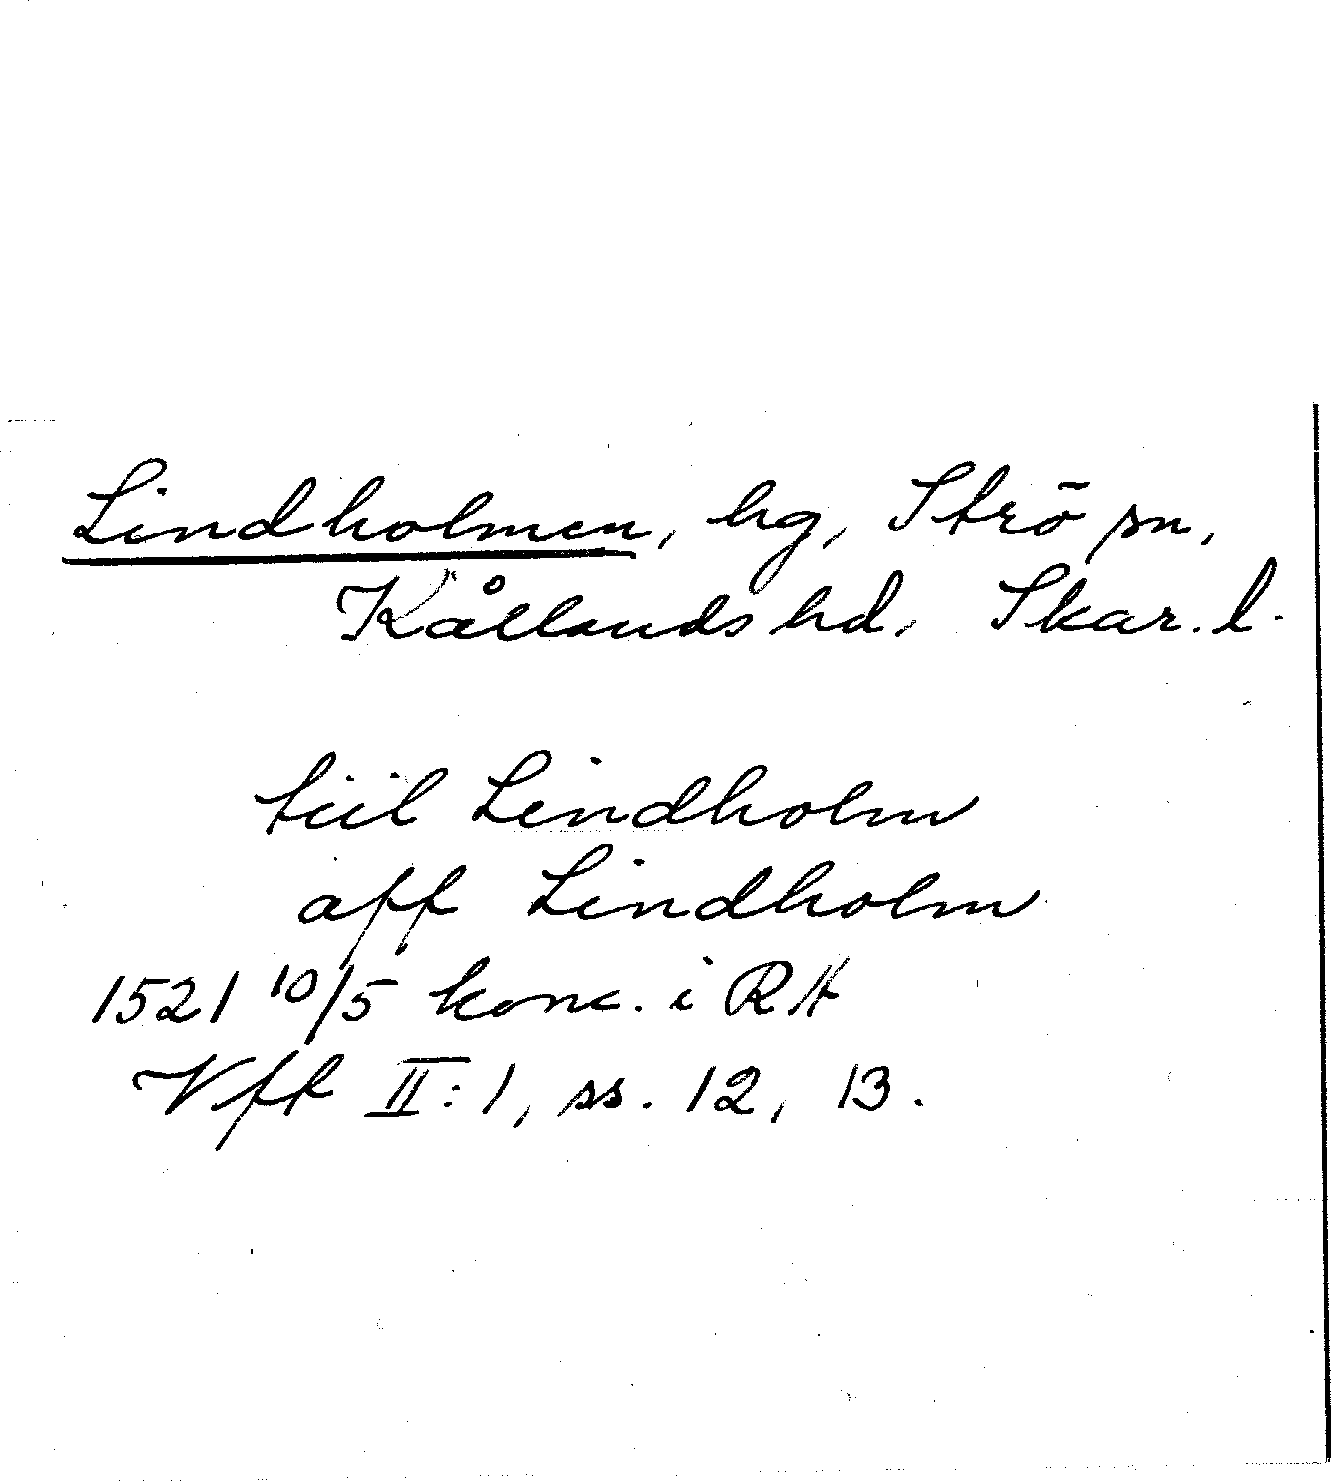 Lindholmen, hg, Strö sn,
Kållands hd, Skar. l.
tiil Lindholm
aff Lindholm
1521 10/5 konc. i RA
Vff II:1, ss. 12, 13.